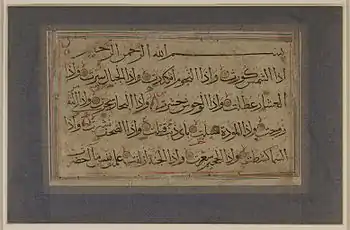 بسم الله الرحمن الرحيم
اذا الشمس كورت واذا النجوم انكدرت واذا الجبال سيرت واذا
العشار عطلت واذا الوحوش حشرت واذا البحار سجرت واذا النفوس
زوجت واذا الموودة سئلت باى ذنب قتلت واذا الصحف نشرت واذا
السماء كشطت واذا الجحيم سعرت واذا الجنة ازلفت علمت نفس ما احضرت